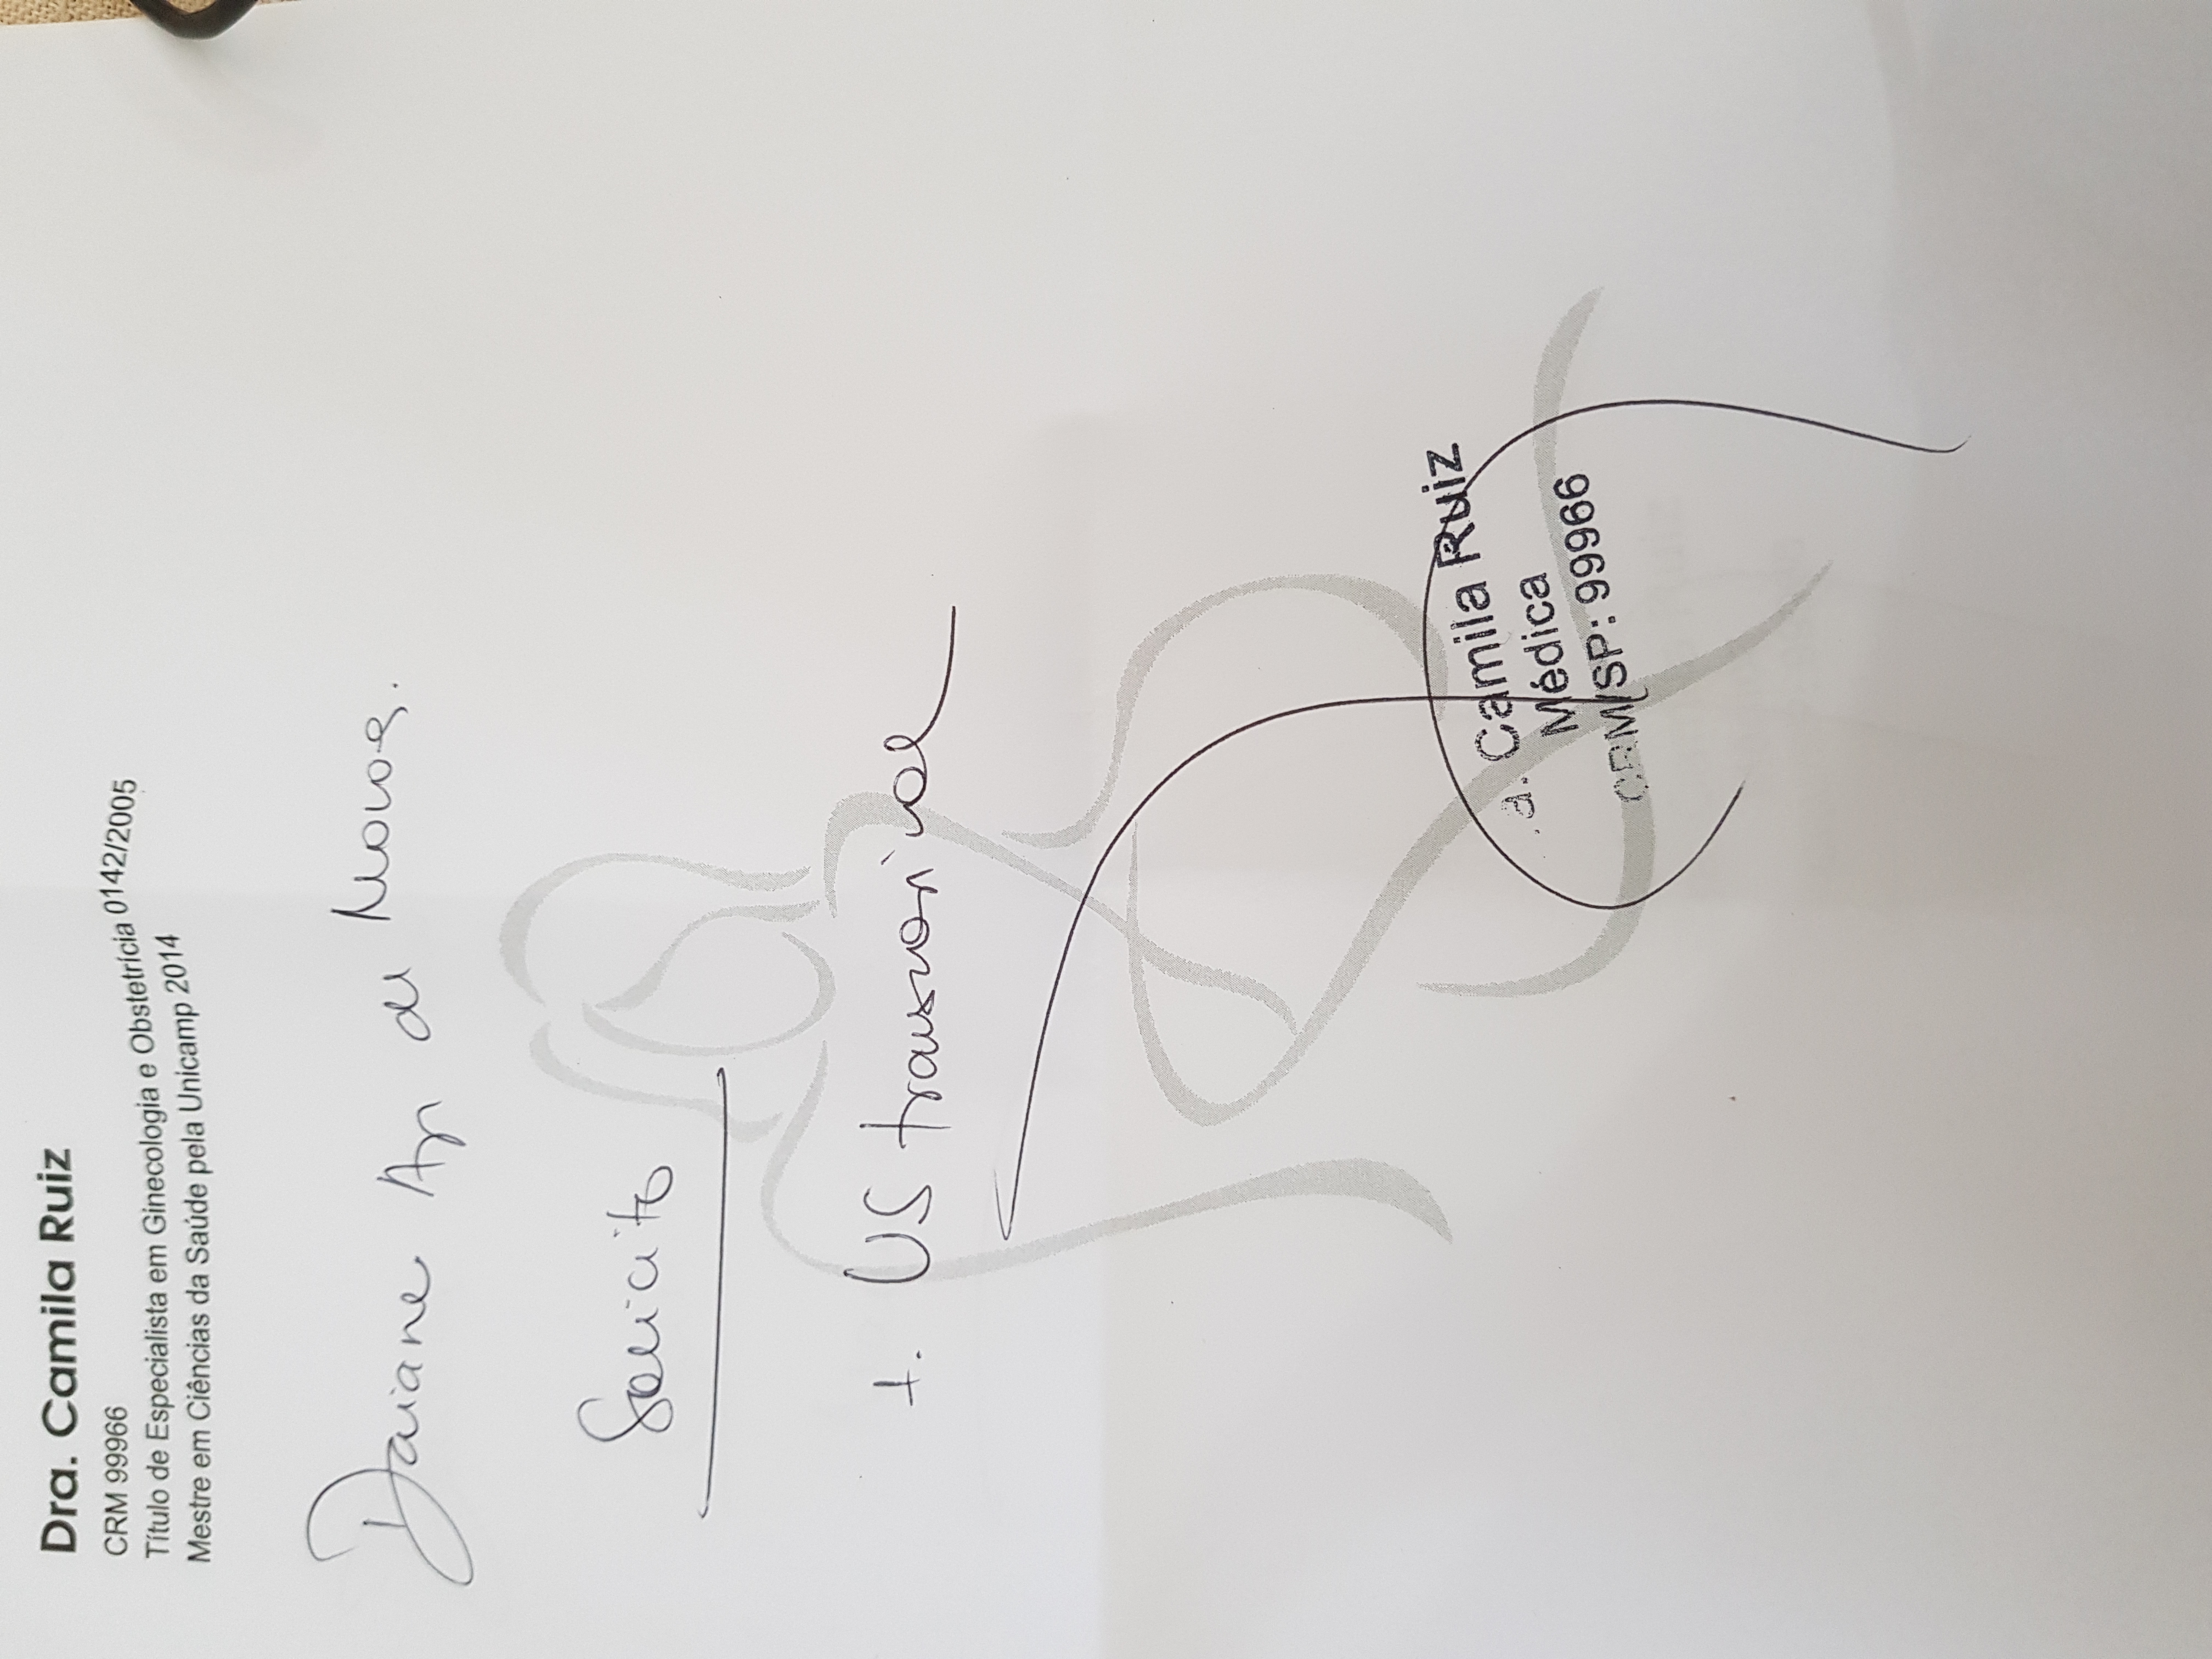 Dra. Camila Ruiz
CRM 99966
Título de Especialista em Ginecologia e Obstetrícia 0142/2005
Mestre em Ciências da Saúde pela Unicamp 2014
Daiane Ap de
Solicito
1. US transvaginal
a. Camila Ruiz
Médica
CRM/SP: 99966